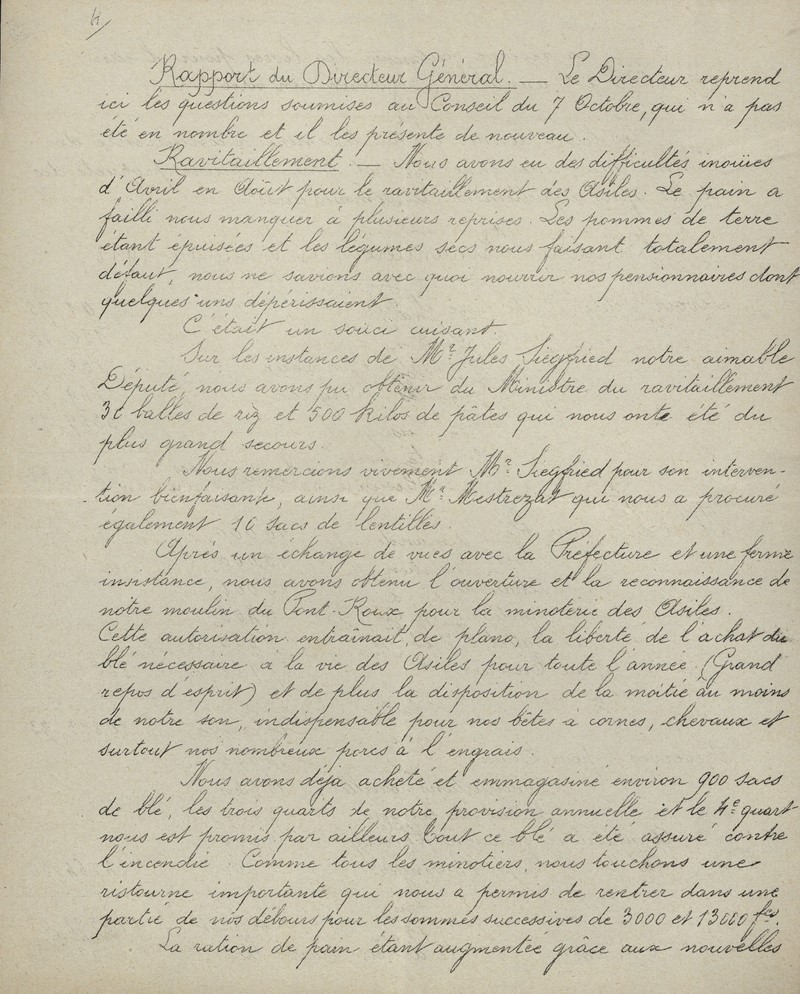 4/
Rapport du Directeur Général. — Le Directeur reprend
ici les questions soumises au Conseil du 7 Octobre, qui n'a pas
été en nombre et il les présente de nouveau.
Ravitaillement. — Nous avons eu des difficultés inouïes
d'Avril en Août pour le ravitaillement des Asiles. Le pain a
failli nous manquer à plusieurs reprises. Les pommes de terre
étant épuisées et les légumes secs nous faisant totalement
défaut, nous ne savions avec quoi nourrir nos pensionnaires dont
quelques uns dépérissaient.
C'était un souci cuisant.
Sur les instances de Mr. Jules Siegfried notre aimable
Député, nous avons pu obtenir du Ministre du ravitaillement
30 balles de riz et 500 kilos de pâtes qui nous onte été du
plus grand secours.
Nous remercions vivement Mr. Siegfried pour son interven-
-tion bienfaisante, ainsi que Mr. Mestrezat qui nous a procuré
également 10 sacs de lentilles.
Après un échange de vues avec la Préfecture et une ferme
insistance, nous avons obtenu l'ouverture et la reconnaissance de
notre moulin du Pont-Roux pour la minoterie des Asiles.
Cette autorisation entraînait de plano, la liberté de l'achat du
blé nécessaire à la vie des Asiles pour toute l'année (Grand
repos d'esprit) et de plus la disposition de la moitié au moins
de notre son, indispensable pour nos bêtes à cornes, chevaux et
surtout nos nombreux porcs à l'engrais.
Nous avons déja acheté et emmagasiné environ 900 sacs
de blé, les trois quarts de notre provision annuelle et le 4e quart
nous est promis par ailleurs. Tout ce blé a été assuré contre
l'incendie. Comme tous les minotiers, nous touchons une
ristourne importante qui nous a permis de rentrer dans une
partie de nos débours pour les sommes successives de 3000 et 13000 fcs.
La ration de pain étant augmentée grâce aux nouvelles